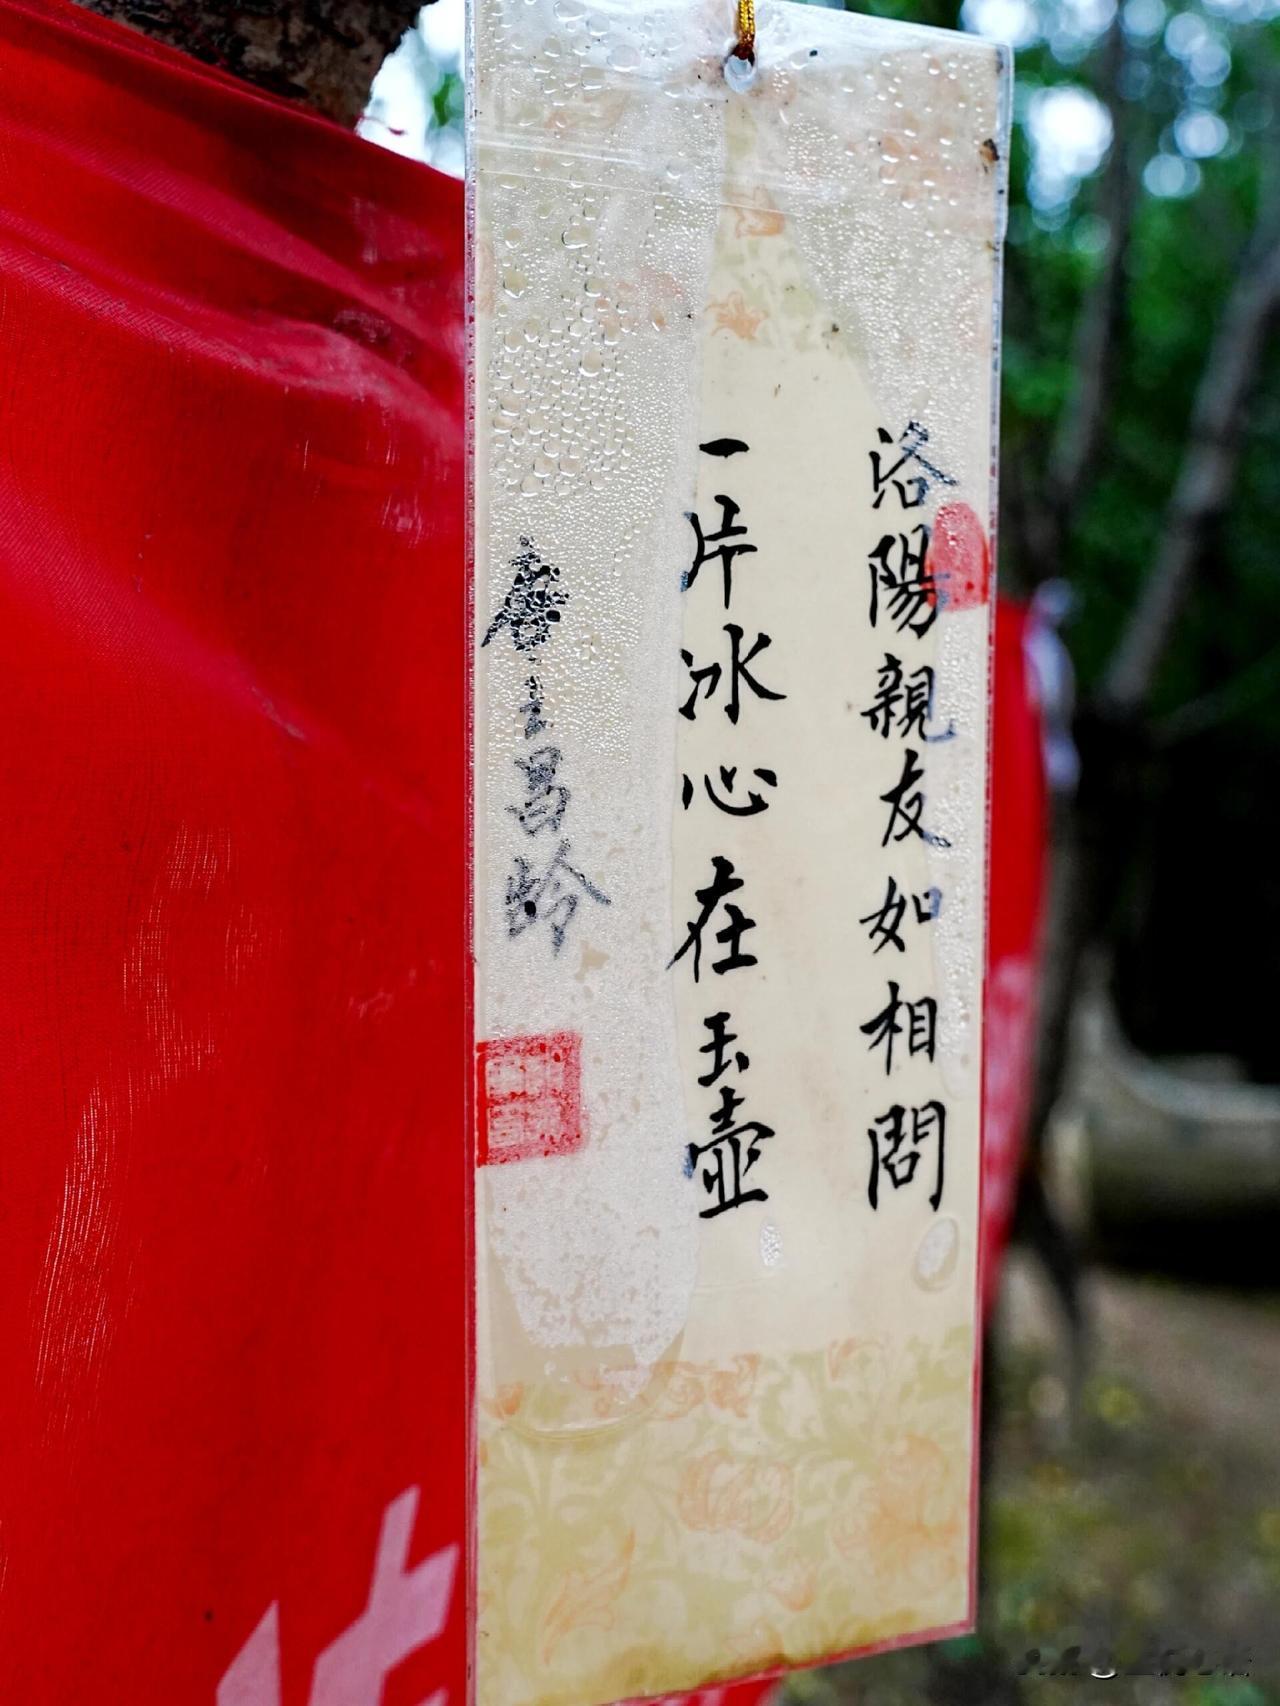 洛陽親友如相問
一片冰心在玉壺
唐王昌龄